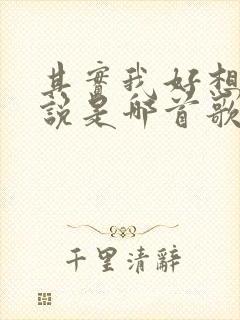 其實我好想
說是哪首歌
千里清辭